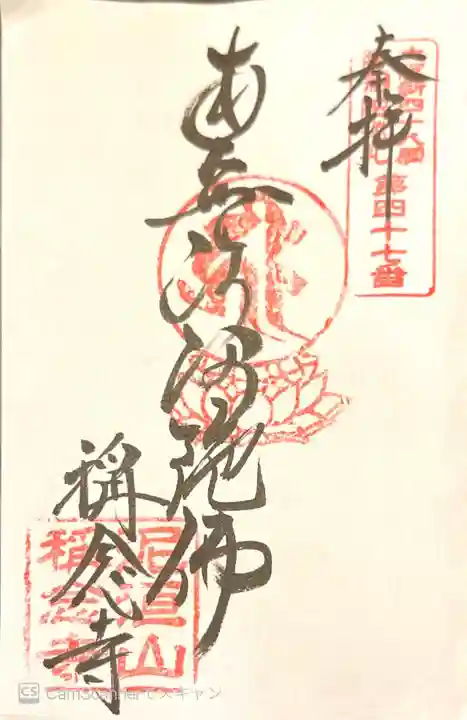 奉拝
第四十七番
南無阿弥陀佛
稱念寺
稱念寺
CS CamScannerでスキャン